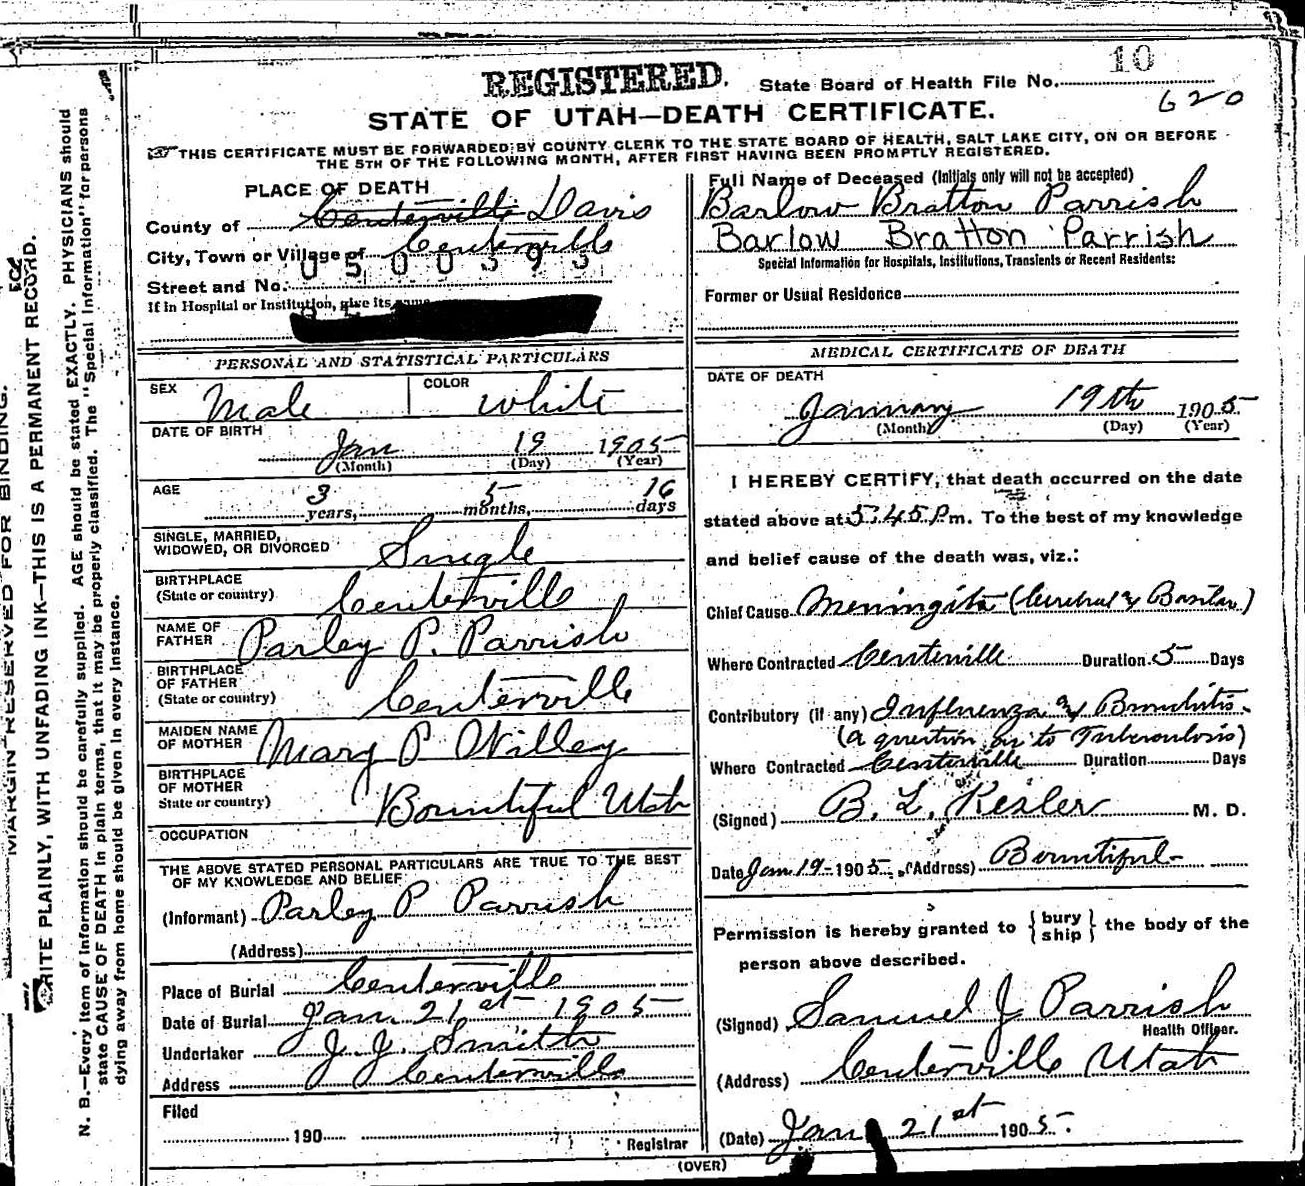 REGISTERED. State Board of Health File No. 10
620
STATE OF UTAH—DEATH CERTIFICATE.
THIS CERTIFICATE MUST BE FORWARDED BY COUNTY CLERK TO THE STATE BOARD OF HEALTH, SALT LAKE CITY, ON OR BEFORE
THE 5TH OF THE FOLLOWING MONTH, AFTER FIRST HAVING BEEN PROMPTLY REGISTERED.
PLACE OF DEATH
County of Centerville Davis
City, Town or Village of Centerville
0500393
Street and No.
If in Hospital or Institution, give its name
Full Name of Deceased (Initials only will not be accepted)
Barlow Bratton Parrish
Barlow Bratton Parrish
Special Information for Hospitals, Institutions, Transients or Recent Residents:
Former or Usual Residence
PERSONAL AND STATISTICAL PARTICULARS
SEX Male COLOR White
DATE OF BIRTH
Jan 19 1905
(Month) (Day) (Year)
AGE 3 years, 5 months, 16 days
SINGLE, MARRIED,
WIDOWED, OR DIVORCED Single
BIRTHPLACE
(State or country) Centerville
NAME OF
FATHER Parley P. Parrish
BIRTHPLACE
OF FATHER
(State or country) Centerville
MAIDEN NAME
OF MOTHER Mary P Willey
BIRTHPLACE
OF MOTHER
State or country) Bountiful Utah
OCCUPATION
THE ABOVE STATED PERSONAL PARTICULARS ARE TRUE TO THE BEST
OF MY KNOWLEDGE AND BELIEF
(Informant) Parley P Parrish
(Address)
Place of Burial Centerville
Date of Burial Jan. 21st 1905
Undertaker J. J. Smith
Address Centerville
Filed
190 Registrar
MEDICAL CERTIFICATE OF DEATH
DATE OF DEATH
January 19th 1905
(Month) (Day) (Year)
I HEREBY CERTIFY, that death occurred on the date
stated above at 5:45 P.m. To the best of my knowledge
and belief cause of the death was, viz.:
Chief Cause Meningitis (Cerebral & Basilar)
Where Contracted Centerville Duration 5 Days
Contributory (if any) Influenza & Bronchitis.
(a question as to Tuberculosis)
Where Contracted Centerville Duration Days
(Signed) B. L. Kesler M. D.
Date Jan 19 - 1905. (Address) Bountiful
Permission is hereby granted to { bury
ship } the body of the
person above described.
(Signed) Samuel J Parrish
Health Officer.
(Address) Centerville Utah
(Date) Jan 21st 1905.
(OVER)
MARGIN RESERVED FOR BINDING.
WRITE PLAINLY, WITH UNFADING INK—THIS IS A PERMANENT RECORD.
N. B.—Every item of information should be carefully supplied. AGE should be stated EXACTLY. PHYSICIANS should
state CAUSE OF DEATH in plain terms, that it may be properly classified. The "Special Information" for persons
dying away from home should be given in every instance.